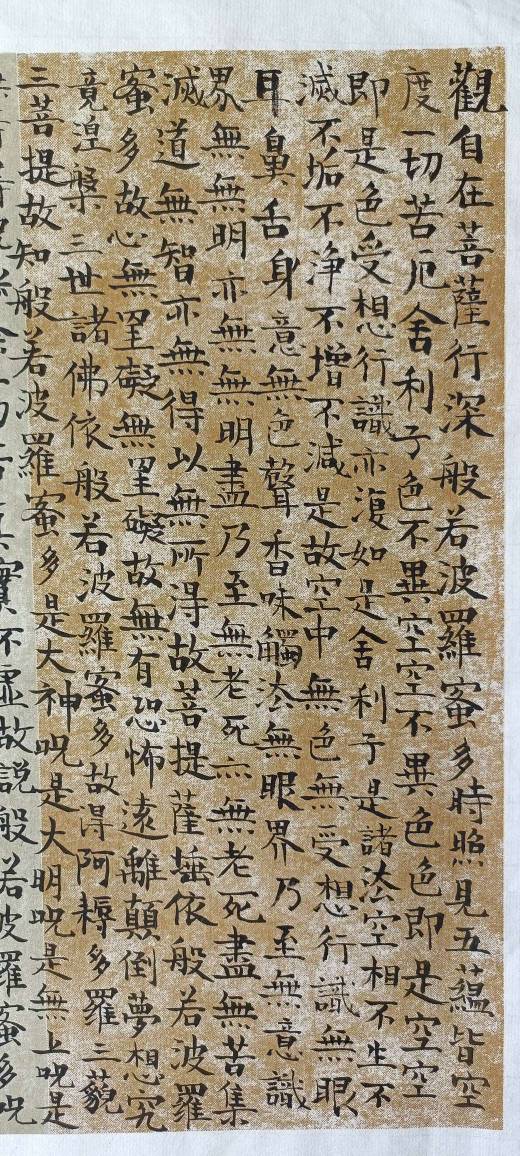 觀自在菩薩行深般若波羅蜜多時照見五蘊皆空
度一切苦厄舍利子色不異空空不異色色即是空空
即是色受想行識亦復如是舍利子是諸法空相不生不
滅不垢不淨不增不減是故空中無色無受想行識無眼
耳鼻舌身意無色聲香味觸法無眼界乃至無意識
界無無明亦無無明盡乃至無老死亦無老死盡無苦集
滅道無智亦無得以無所得故菩提薩埵依般若波羅
蜜多故心無罣礙無罣礙故無有恐怖遠離顛倒夢想究
竟涅槃三世諸佛依般若波羅蜜多故得阿耨多羅三藐
三菩提故知般若波羅蜜多是大神呪是大明呪是無上呪是
真實不虛故説般若波羅蜜多呪